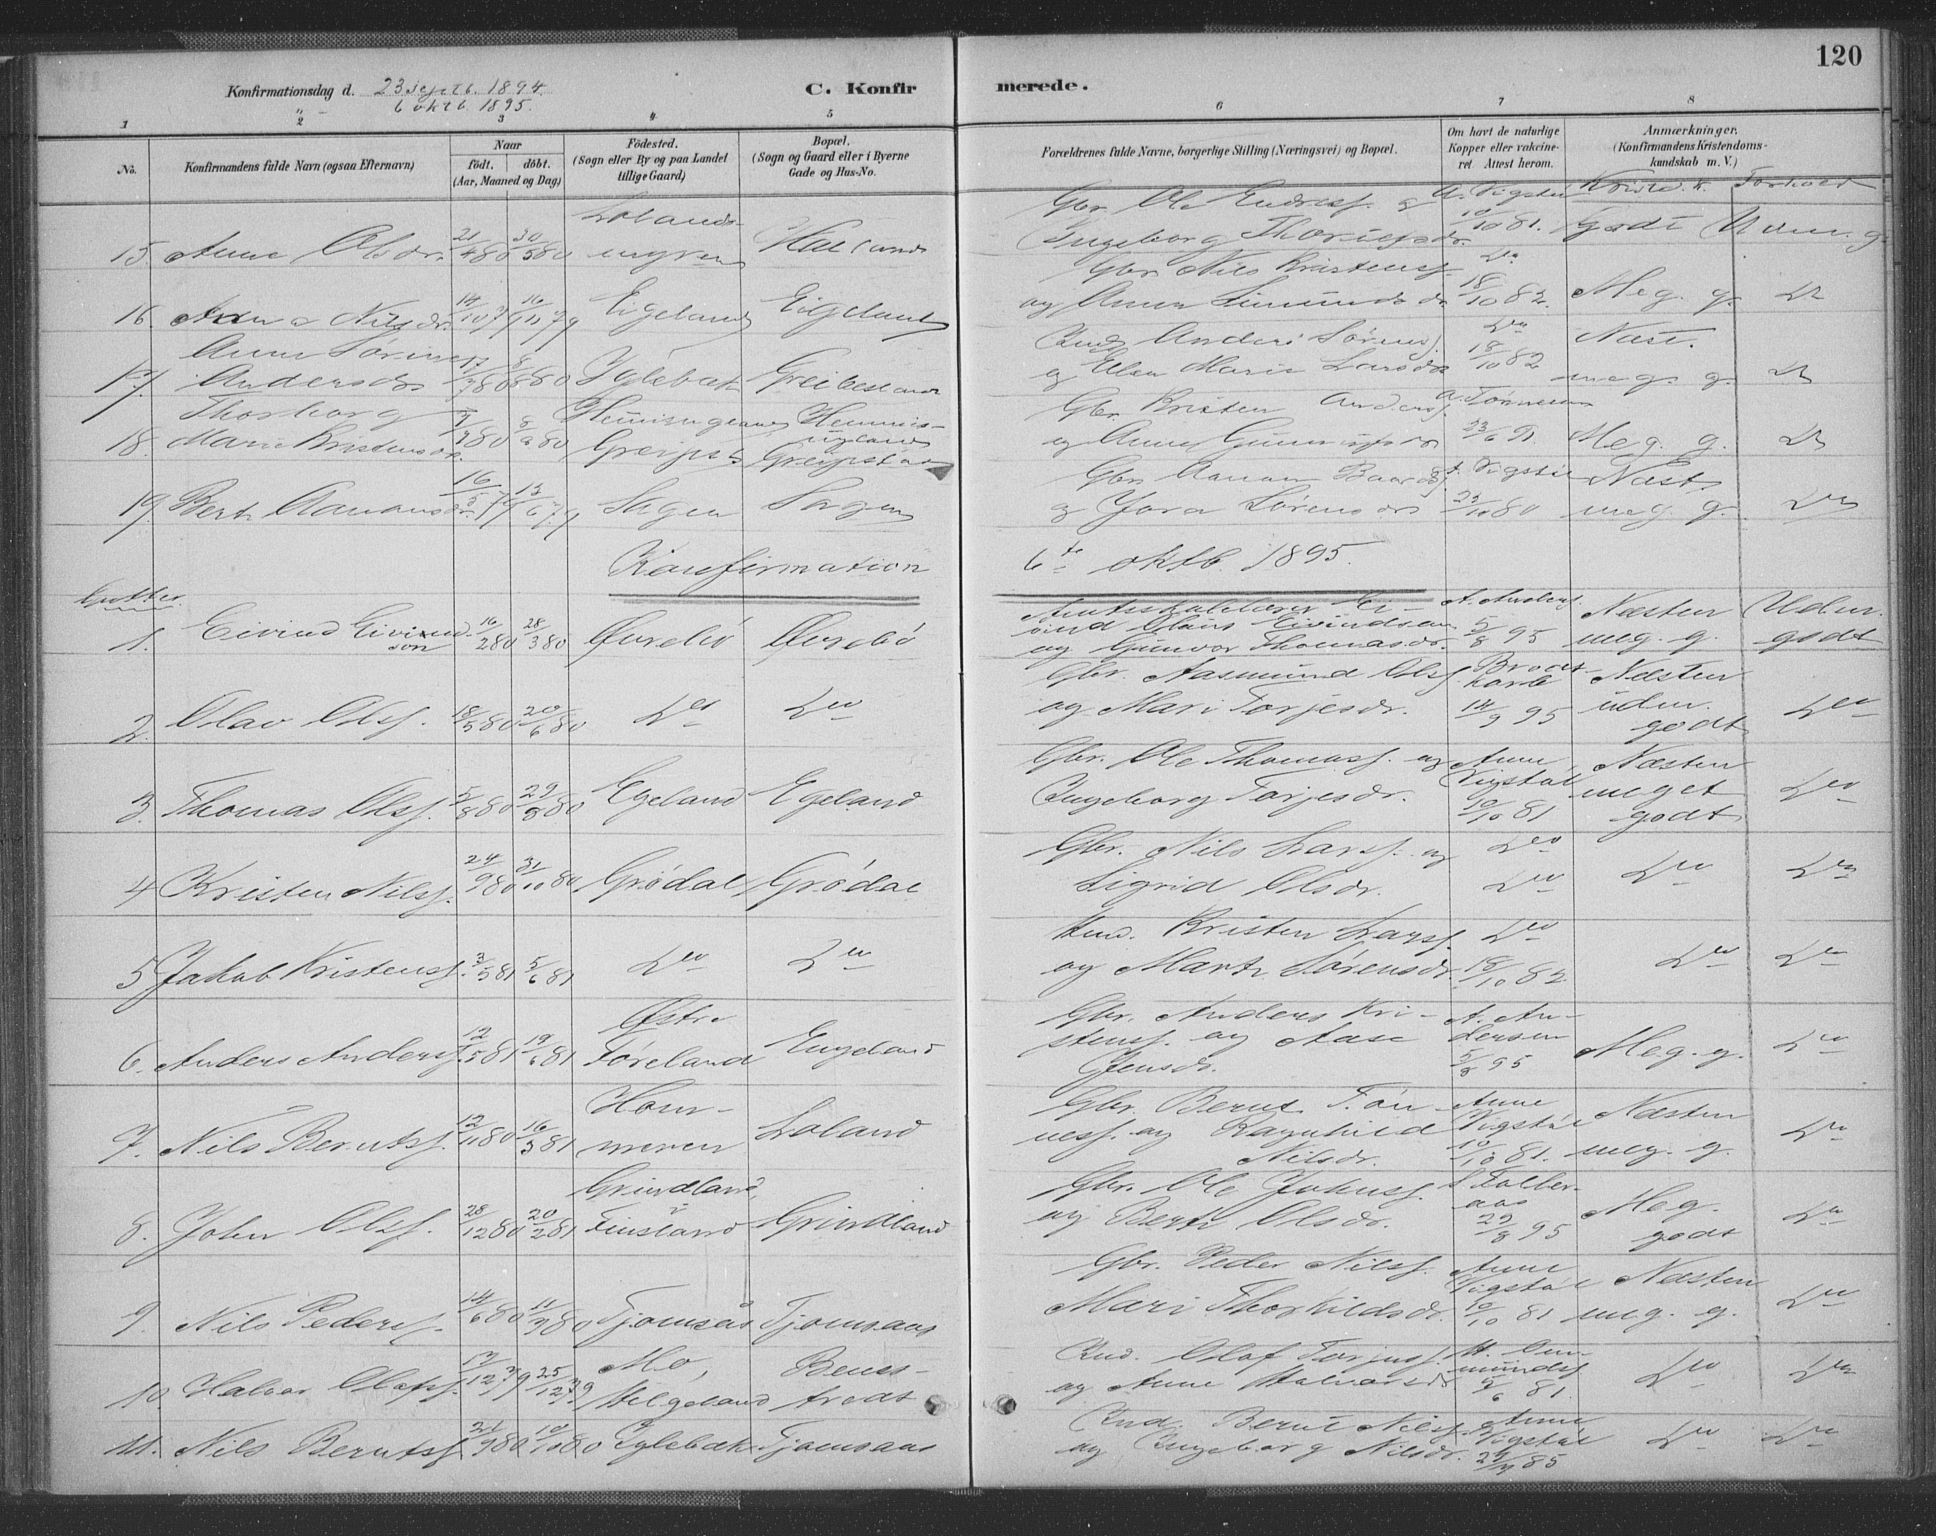 120
Konfirmationsdag d. 23 Septb. 1894
" 6 oktb. 1895.
C. Konfirmerede.
1 2 3 4 5 6 7 8
No.
Konfirmandens fulde Navn (ogsaa Efternavn)
Naar
født. døbt.
(Aar, Maaned og Dag)
Fødested.
(Sogn eller By og paa Landet
tillige Gaard)
Bopæl.
(Sogn og Gaard eller i Byerne
Gade og Hus-No.
Forældrenes fulde Navne, borgerlige Stilling (Næringsvei) og Bopæl.
Om havt de naturlige
Kopper eller vakcine-
ret Attest herom.
Anmærkninger.
(Konfirmandens Kristendoms-
kundskab m. V.)
Kristd. k. Forhold
15. Anne Olsdr. 21/4 80 30/5 80
Gbr. Ole Endresf. og
Ingeborg
A. Vigstøl 10/10 81. Godt Udm. g.
16. Anna Nilsdr. 14/10 79 16/11 79 Eigeland Eigeland
Gbr. Nils Kristensf.
og Anna
Do 18/10 82. Meg. g. Do
17. Anne Sørine
Andersdr. 17/7 80 8/8 80 Iglebæk Greibesland
Ind. Anders Sørens.
og Elen Marie Larsdr
Do 18/10 82 Næst.
meg. g. Do
18. Thorborg
Marie Kristensdr. 80 80 Greipst
Gbr. Kristen Anders.
og Anne
23/6 91 Meg. g. Do
19. Bert Aanonsdr. 16/5 79 15/6 79 Sagen Sagen
Gbr. Aanon
og Jora Sørensdr
A. Vigstøl 25/10 80 Næst
meg. g. Do
Konfirmation 6te oktb. 1895.
Gutter.
1. Eivind Eivind-
son 16/2 80 28/3 80 Øvrebø Øvrebø
Ei-
vind Claus Eivindsen
og Gunvor Thomasdr.
A. Anders. 5/8 95 Næsten
meg. g. Udm.
godt
2. Olav Olsf. 18/5 80 20/6 80 Do Do
Gbr. Aasmund Olsf
og Mari Torjesdr.
Brodt-
korb
14/9 95 Næsten
udm.
godt Do
3. Thomas Olsf. 5/8 80 29/8 80 Egeland Egeland
Gbr. Ole Thomasf. og
Ingeborg Torjesdr.
Anne
Vigstøl
10/10 81 Næsten
meget
godt Do
4 Kristen Nilsf. 24/9 80 31/10 80 Grødal Grødal
Gbr. Nils Larsf. og
Sigrid Olsdr.
Do
Do Do Do
5 Jakob Kristensf. 3/5 81 5/6 81 Do Do
Ind. Kristen Larsf.
og Marte Sørensdr.
Do
18/10 82 Do Do
6. Anders Andersf. 12/5 81 19/6 81 Østre
Føreland Engeland
Gbr. Anders Kri-
stensf. og Aase
Jensdr.
A. An-
dersen
5/8 95 Meg. g. Do
7. Nils Berntsf. 12/11 80 16/3 81 Hom-
meren Loland
Gbr. Bernt Tøn-
nesf. og Ragnhild
Nilsdr.
Anne
Vigstøl
10/10 81. Næsten
meg. g. Do
8. John Olsf. 28/12 80 20/2 81 Grindland,
i
Finsland Grindland
Gbr. Ole Johnsf.
og Bert Olsdr.
29/8 95 Meg.
godt Do
9. Nils Pedersf. 14/6 80 11/9 80 Tjomsås Tjomsaas
Gbr. Peder Nilsf.
Mari Thorkildsdr.
Anne
Vigstøl
10/10 81 Næsten
meg. g. Do
10. Halvor Olafsf. 17/12 79 25/12 79 Mo,
Helgeland
Ind. Olaf Torjusf.
og Anne Halvorsdr
5/6 81. Do Do
11. Nils Berntsf. 21/9 80 10/10 80 Iglebæk Tjomsaas
Ind. Bernt Nilsf.
og Ingeborg Nilsdr.
Anne
Vigstøl
85 Do Do